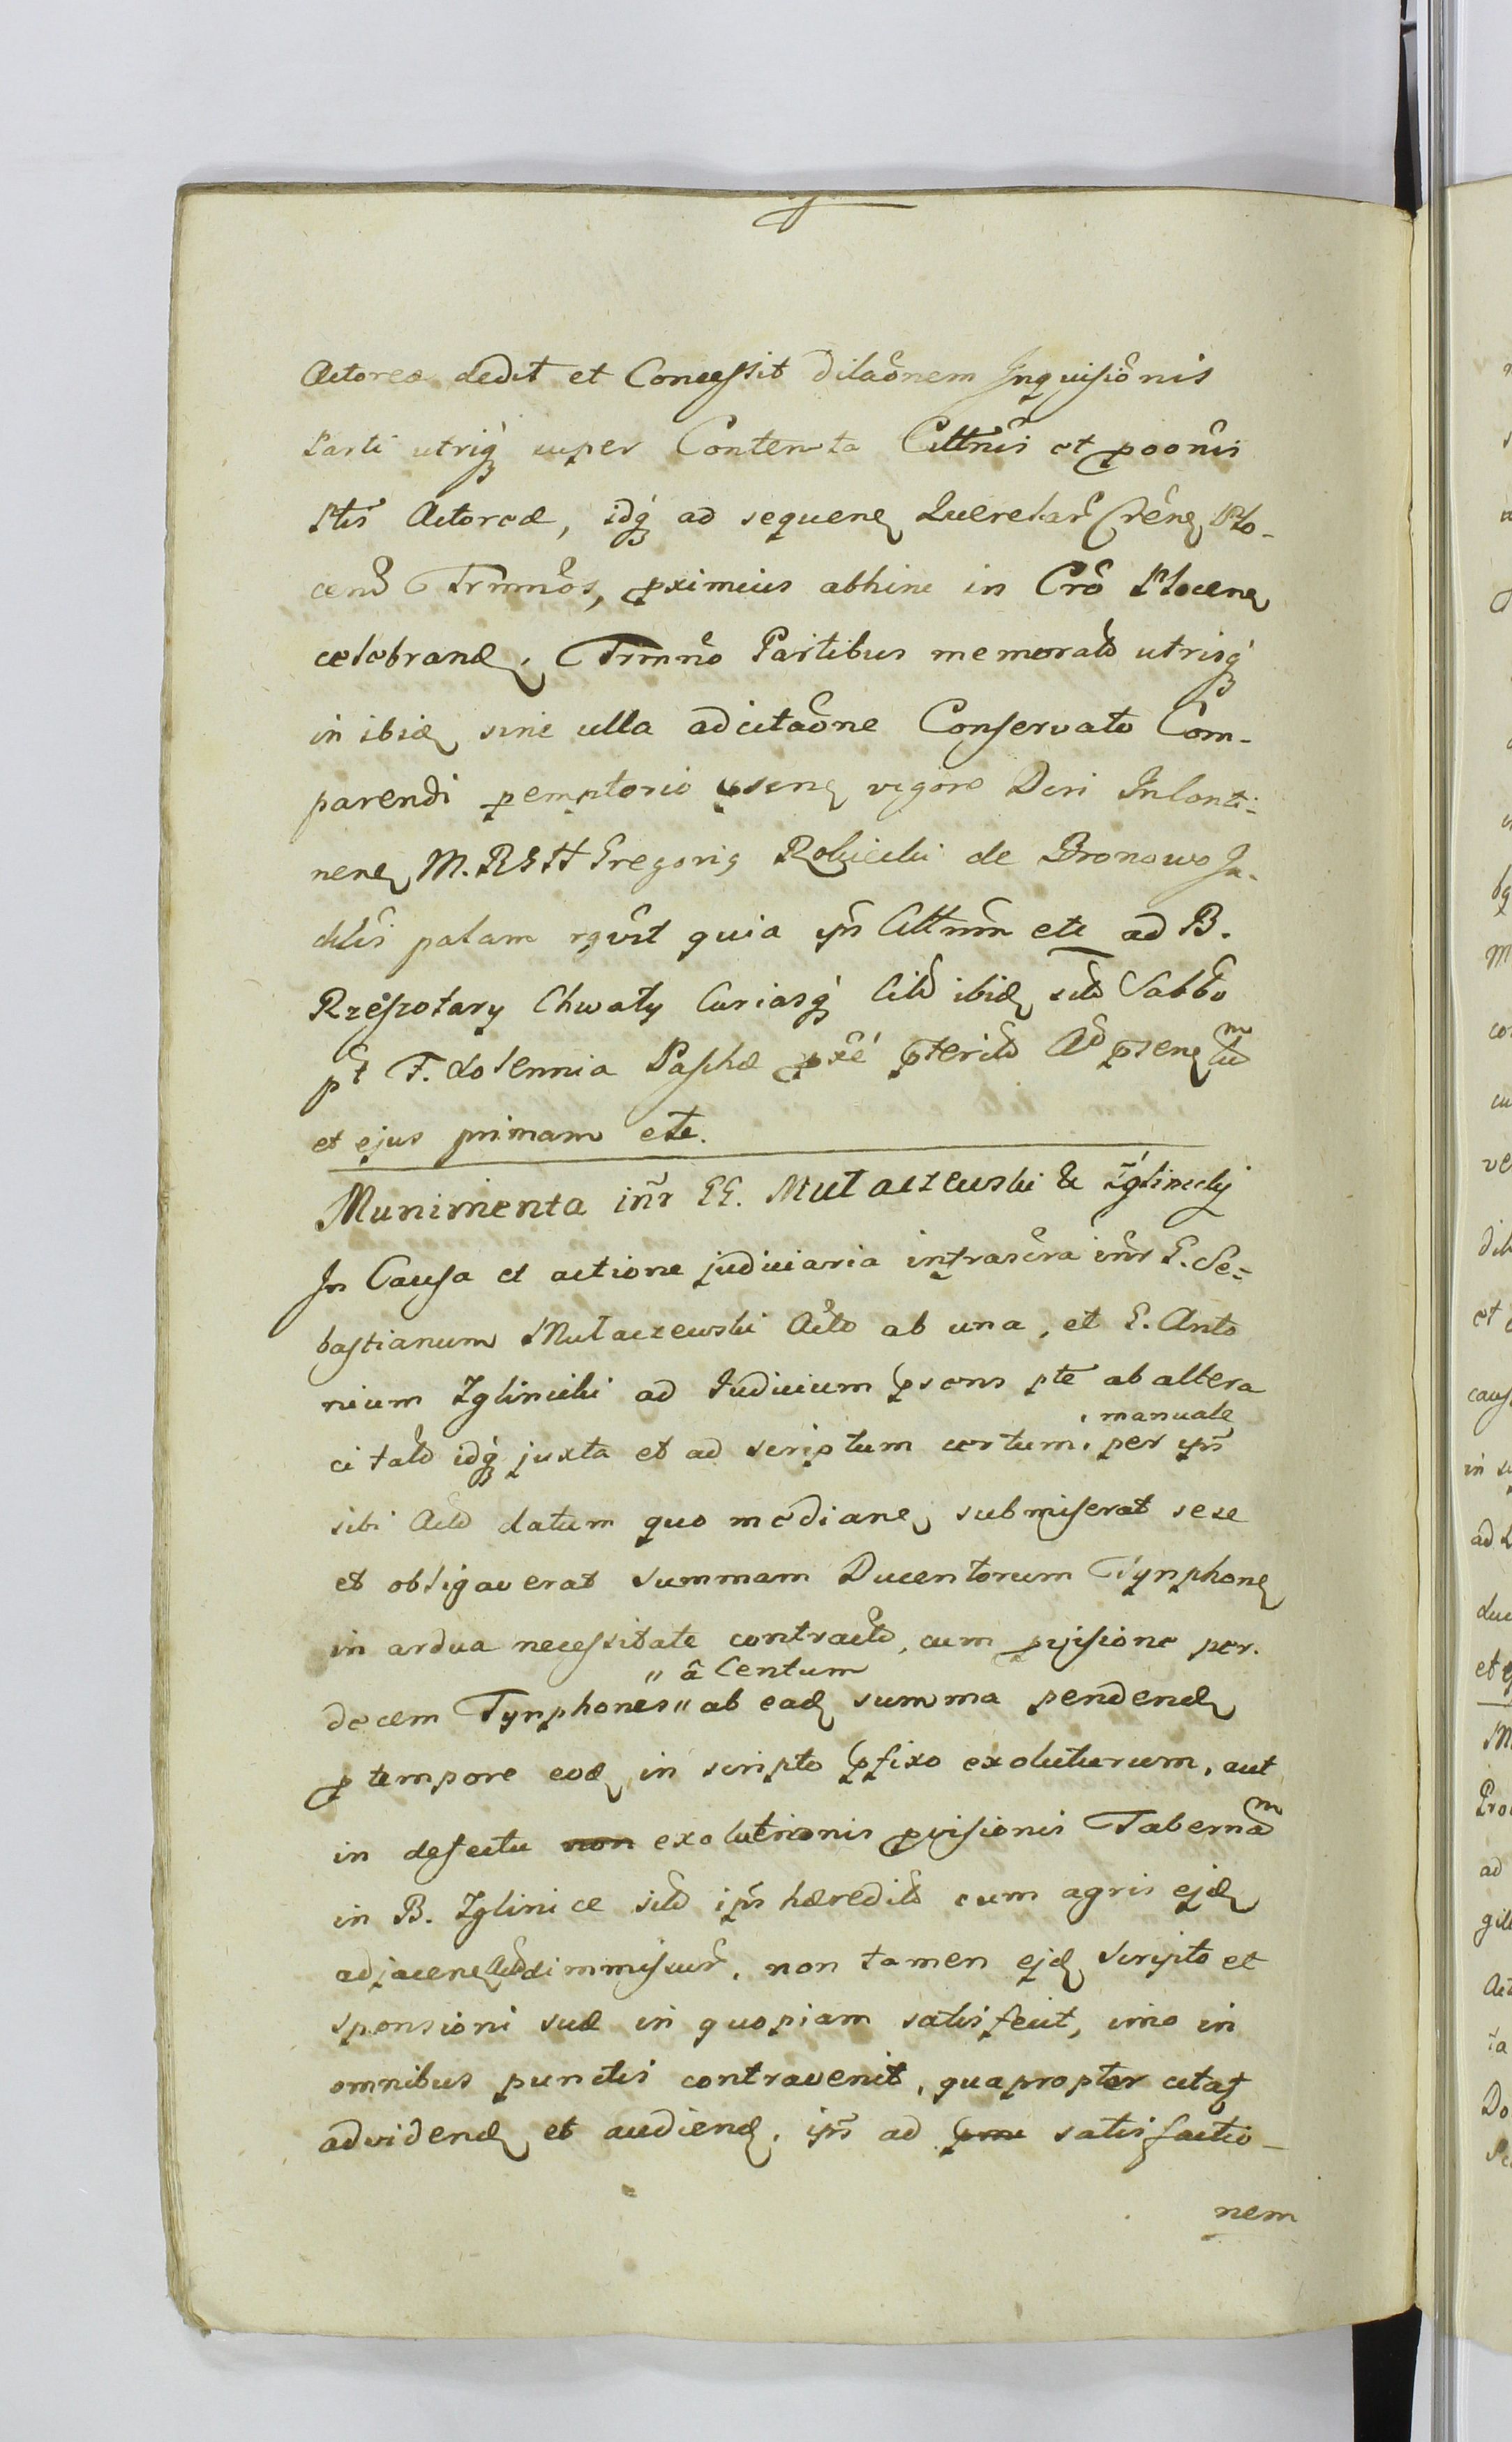 Actoreæ dedit et Concessit dilaõnem Inquisiõnis
Parti utriq́ super Contenta Cittñis et ꝓpoõnis
Ptis Actoreæ, idq́ ad sequenę Querelar̃ Crẽnę Plo-
cenỡ Trmnõs, ꝓximius abhinc in Crõ Plocenę
celebrandę, Trmnõ Partibus memoratỡ utrisq́
in ibidę sine ulla adcitaõne Conservato Com-
parendi pemptorio psenę vigore Dcri Inconti-
nenę M. RSH Gregorig Robiecki de Bronowo Ju-
dclis palam rgvit quia ipñ Cittnm̃ etc ad B.
Rzeszotary Chwały Curiasq́ Citỡ ibidę sitỡ Sabbỡ
pt F. solennia Paschæ ꝓxẽ pteritỡ Aỡ psenę tum
et ejus primam etc.
Munimenta int̃r GG. Mułaczewski & Zglinicky
In Causa et actione judiciaria infrascr̃a int̃r G. Se=
bastianum Mułaczewski Actỡ ab una, et G. Anto
nium Zglinicki ad Judicium psens pte ab altera
citatỡ idq́ juxta et ad scriptum certum, manuale per ipñ
sibi Actỡ datum quo medianę submiserat sese
et obligaverat summam Ducentorum Tynphonę
in ardua necessitate contractỡ, cum pvisione per
decem Tynphones " â Centum " ab eadę summa pendendę
ꝓ tempore eodę in scripto pfixo exoluturum, aut
in defectu non exolutionis ꝓvisionis Tabernam
in B. Zglinice sitỡ ipñ hæreditỡ cum agris ejdę
adjacenę Actỡ dimmisur̃, non tamen ejdę scripto et
sponsioni suæ in quopiam satisfecit, imo in
omnibus punctis contravenit, quapropter citaꝭ
ad videndę et audiendę, ipñ ad satisfactio-
nem